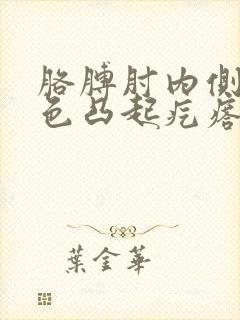 胳膊肘内侧
色凸起疙瘩
葉金華